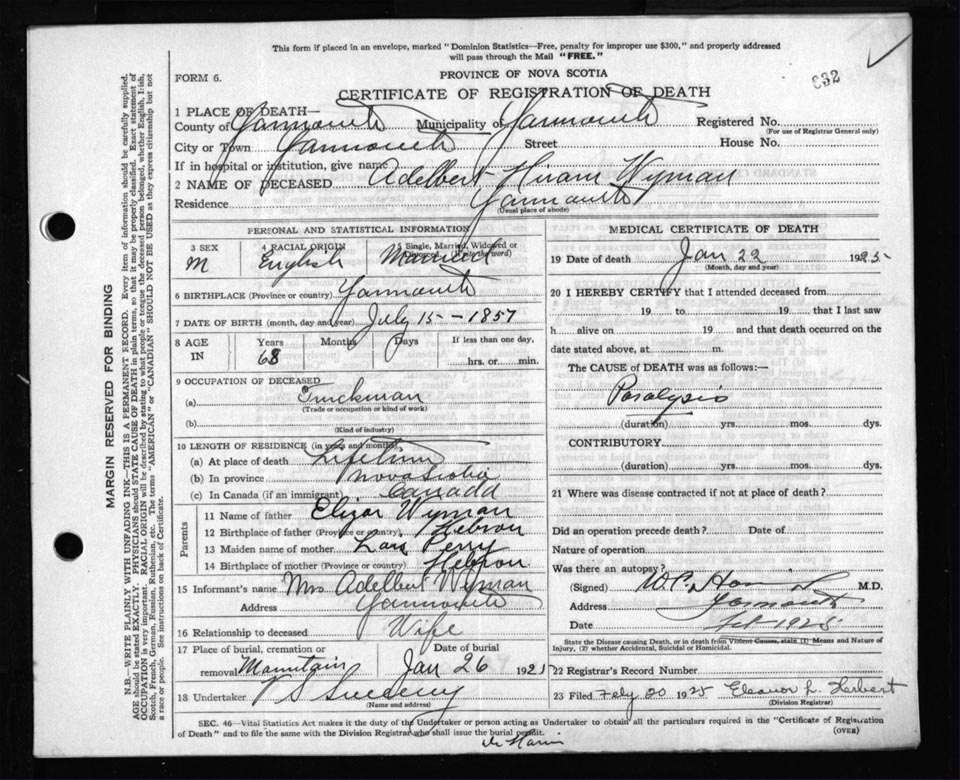 This form if placed in an envelope, marked "Dominion Statistics—Free, penalty for improper use $300," and properly addressed
will pass through the Mail "FREE."
FORM 6.
PROVINCE OF NOVA SCOTIA
632
CERTIFICATE OF REGISTRATION OF DEATH
1 PLACE OF DEATH—
County of Yarmouth Municipality of Yarmouth Registered No.
(For use of Registrar General only)
City or Town Yarmouth Street House No.
If in hospital or institution, give name
2 NAME OF DECEASED Adelbert Hiram Wyman
Residence Yarmouth
(Usual place of abode)
PERSONAL AND STATISTICAL INFORMATION
3 SEX 4 RACIAL ORIGIN 5 Single, Married, Widowed or
Divorced (write the word)
M English Married
6 BIRTHPLACE (Province or country) Yarmouth
7 DATE OF BIRTH (month, day and year) July 15 - 1857
8 AGE IN Years Months Days If less than one day,
68 hrs. or min.
9 OCCUPATION OF DECEASED
(a) Truckman
(Trade or occupation or kind of work)
(b)
(Kind of industry)
10 LENGTH OF RESIDENCE (in years and months)
(a) At place of death Lifetime
(b) In province Nova Scotia
(c) In Canada (if an immigrant) Canada
Parents
11 Name of father Wyman
12 Birthplace of father (Province or country) Hebron
13 Maiden name of mother Perry
14 Birthplace of mother (Province or country) Hebron
15 Informant's name Mrs Adelbert Wyman
Address Yarmouth
16 Relationship to deceased Wife
17 Place of burial, cremation or Date of burial
removal Mountain Jan 26 192
18 Undertaker V S Sweeny
(Name and address)
MEDICAL CERTIFICATE OF DEATH
19 Date of death Jan 22 1925
(Month, day and year)
20 I HEREBY CERTIFY that I attended deceased from
19 to 19 that I last saw
h alive on 19 and that death occurred on the
date stated above, at m.
The CAUSE of DEATH was as follows:—
Paralysis
(duration) yrs. mos. dys.
CONTRIBUTORY
(duration) yrs. mos. dys.
21 Where was disease contracted if not at place of death?
Did an operation precede death? Date of
Nature of operation
Was there an autopsy?
(Signed) M.D.
Address Yarmouth
Date Feb 1925
State the Disease causing Death, or in death from Violent Causes, state (1) Means and Nature of
Injury, (2) whether Accidental, Suicidal or Homicidal.
22 Registrar's Record Number
23 Filed 20 1925 Eleanor L. Herbert
(Division Registrar)
SEC. 46—Vital Statistics Act makes it the duty of the Undertaker or person acting as Undertaker to obtain all the particulars required in the "Certificate of Registration
of Death" and to file the same with the Division Registrar who shall issue the burial permit.
(OVER)
MARGIN RESERVED FOR BINDING
N.B.—WRITE PLAINLY WITH UNFADING INK—THIS IS A PERMANENT RECORD. Every item of information should be carefully supplied.
AGE should be stated EXACTLY. PHYSICIANS should STATE CAUSE OF DEATH in plain terms, so that it may be properly classified. Exact statement of
OCCUPATION is very important. RACIAL ORIGIN will be described by stating to what people or tongue the deceased person belonged, whether English, Irish,
Scotch, French, German, Russian, Ruthenian, etc. The terms "AMERICAN" or "CANADIAN" SHOULD NOT BE USED as they express citizenship but not
a race or people. See instructions on back of Certificate.